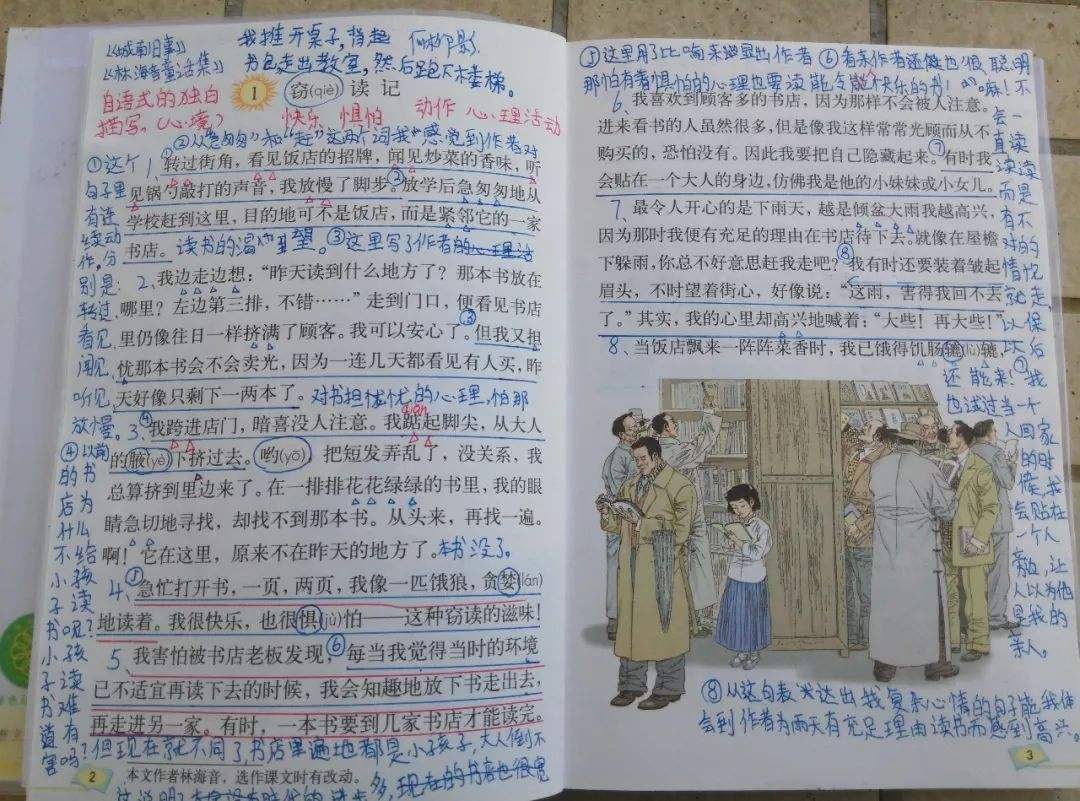 《城南旧事》
《林海音童话集》
我推开桌子，背起
书包走出教室，然后跑下木楼梯。
自语式的独白
描写。（心境）
1 窃(qiè)读记
快乐 惧怕 动作 心理活动
②从"急匆匆"和"赶"这两个词我感觉到作者对
读书的渴望。
①这个
句子里
有连
续动
作，分
别是：
转过、
看见、
闻见、
听见、
放慢。
1、转过街角，看见饭店的招牌，闻见炒菜的香味，听
见锅勺敲打的声音，我放慢了脚步。②放学后急匆匆地从
学校赶到这里，目的地可不是饭店，而是紧邻它的一家
书店。
③这里写了作者的心理活
2、我边走边想："昨天读到什么地方了？那本书放在
哪里？左边第三排，不错……"走到门口，便看见书店
里仍像往日一样挤满了顾客。我可以安心了。③但我又担
忧那本书会不会卖光，因为一连几天都看见有人买，昨
天好像只剩下一两本了。
对书担忧忧的心理，怕那
本书没了。
3、④我跨进店门，暗喜没人注意。我踮起脚尖，从大人
diǎn
的腋(yè)下挤过去。哟(yō)，把短发弄乱了，没关系，我
总算挤到里边来了。在一排排花花绿绿的书里，我的眼
睛急切地寻找，却找不到那本书。从头来，再找一遍。
啊！它在这里，原来不在昨天的地方了。
4、⑤急忙打开书，一页，两页，我像一匹饿狼，贪婪(lán)
地读着。我很快乐，也很惧(jù)怕——这种窃读的滋味！
5、我害怕被书店老板发现，⑥每当我觉得当时的环境
已不适宜再读下去的时候，我会知趣地放下书走出去，
再走进另一家。有时，一本书要到几家书店才能读完。
④以前
的书
店为
什么
不给
小孩
子读
书呢？
小孩
子读
书难
道有
害吗？
但现在就不同了，书店里遍地都是小孩子，大人倒不
多，现在的书店也很宽
本文作者林海音，选作课文时有改动。
2
⑤这里用了比喻来地显出作者
那怕有着惧怕的心理也要读
⑥看来作者还健也很聪明
嘛！不
会一
直读
读读
而是
有不
对的
情况
就走
以保
以后
还能来！
6、我喜欢到顾客多的书店，因为那样不会被人注意。
进来看书的人虽然很多，但是像我这样常常光顾而从不
购买的，恐怕没有。因此我要把自己隐藏起来。⑦有时我
会贴在一个大人的身边，仿佛我是他的小妹妹或小女儿。
7、最令人开心的是下雨天，越是倾盆大雨我越高兴，
因为那时我便有充足的理由在书店待下去。就像在屋檐
下躲雨，你总不好意思赶我走吧？⑧我有时还要装着皱起
眉头，不时望着街心，好像说："这雨，害得我回不去
了。"其实，我的心里却高兴地喊着："大些！再大些！"
8、当饭店飘来一阵阵菜香时，我已饿得饥肠辘(lù)辘，
⑦我
也试过当一个
人回家
的时
候，我
会贴在
一个人
旁边，让
人以为他
是我的
亲人。
⑧从这句表米达出我复杂心情的句子能我体
会到作者为雨天有充足理由读书而感到高兴。
3